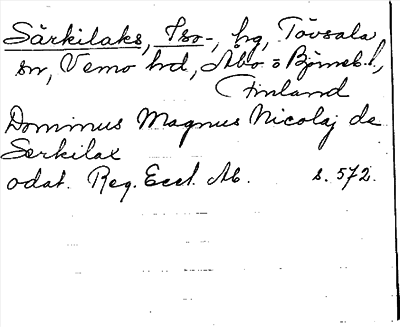 Särkilaks, Iso-, hg, Tövsala
sn, Vemo hd, Åbo o Björneb. l.,
Finland
Dominus Magnus Nicolaj de
Serkilax
odat. Reg. Eccl. Ab. s. 572.